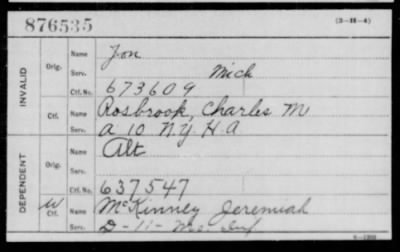 876535 (3-H-4)
INVALID
Orig. Name Jon
Serv. Mich
Ctf. No. 673609
Ctf. Name Rosbrook, Charles M
Serv. A 10 N.Y. H A
DEPENDENT
Orig. Name Alt
Serv.
Ctf. No. 637547
W Ctf. Name McKinney Jeremiah
Serv. D-11- Mo Inf